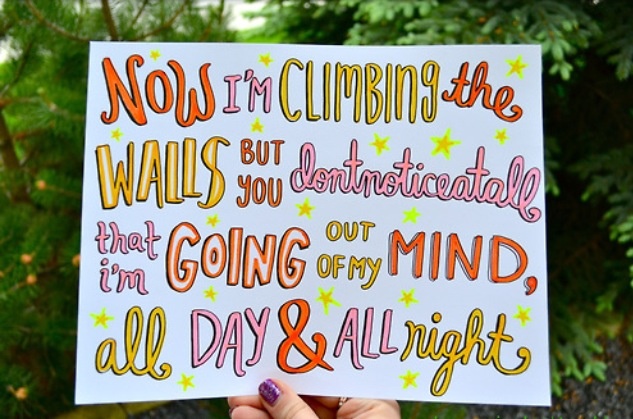 NOW I'M CLIMBING the
WALLS BUT YOU dontnoticeatall
that i'm GOING OUT OF MY MIND,
all DAY & ALL right